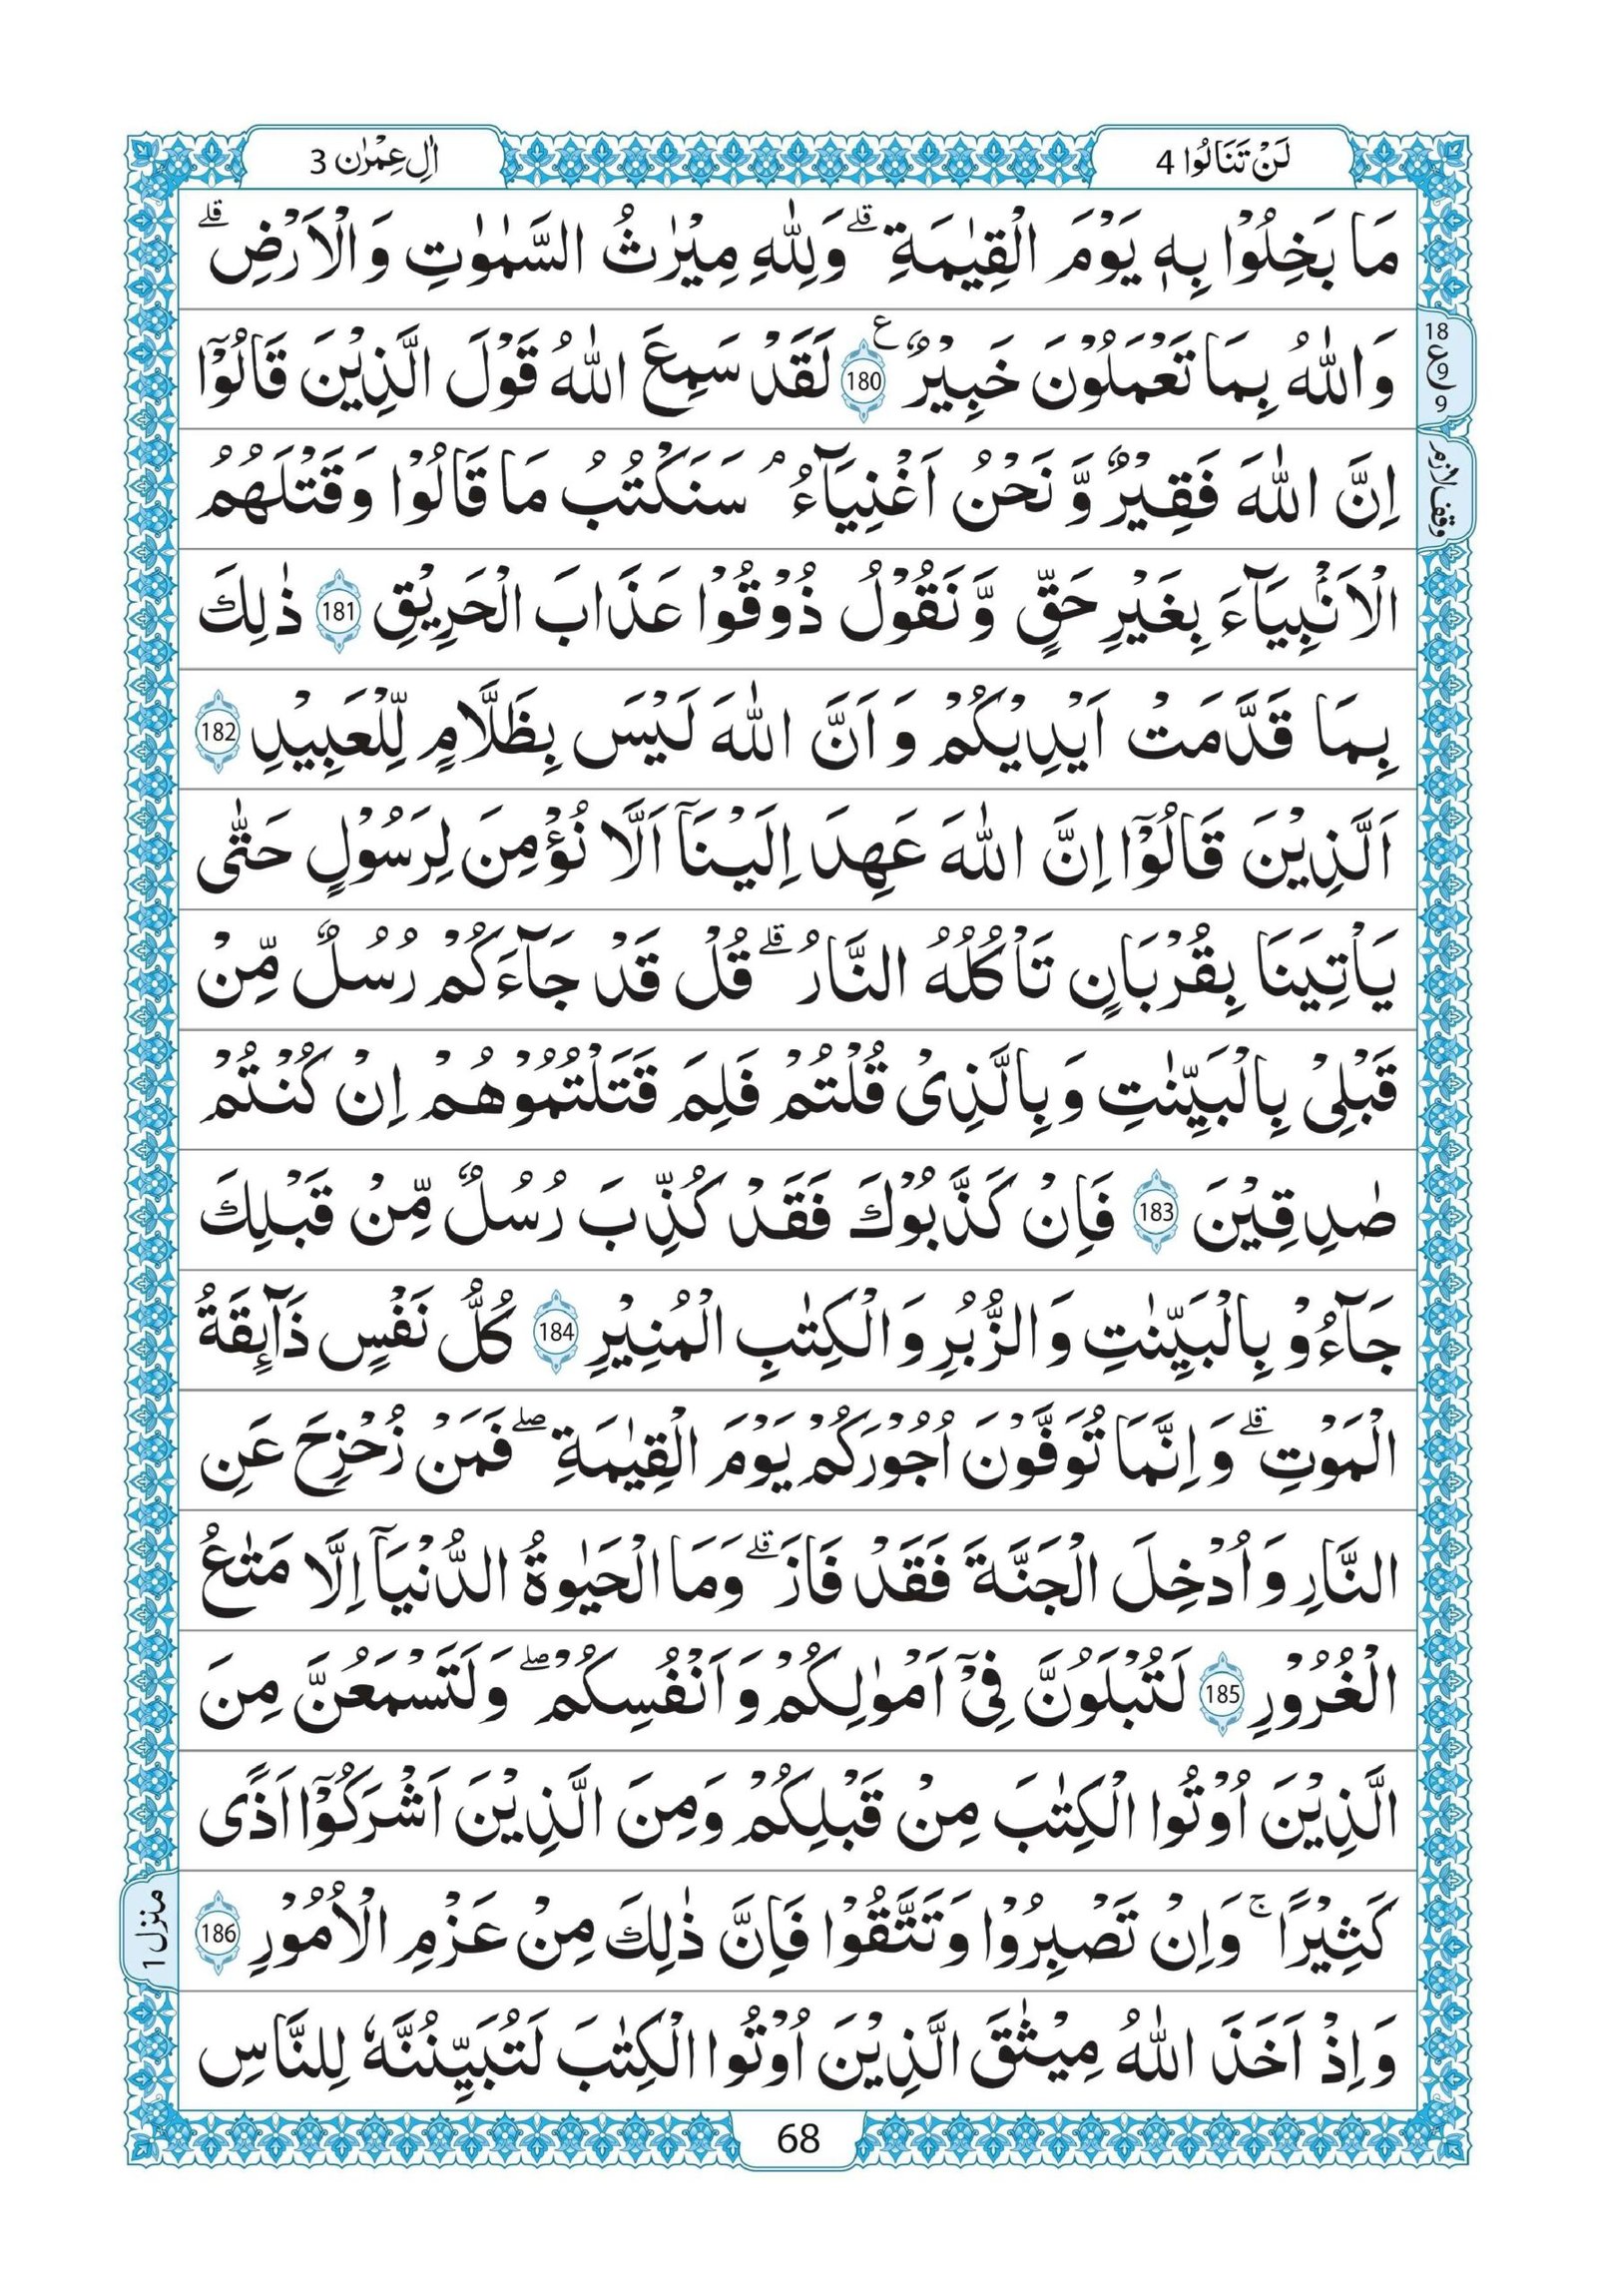 لَنْ تَنَالُوا 4
اٰلِ عِمْرٰن 3
مَا بَخِلُوْا بِهٖ يَوْمَ الْقِيٰمَةِ ۗ وَلِلّٰهِ مِيْرٰثُ السَّمٰوٰتِ وَالْاَرْضِ ۗ
وَاللّٰهُ بِمَا تَعْمَلُوْنَ خَبِيْرٌ ۧ 180 لَقَدْ سَمِعَ اللّٰهُ قَوْلَ الَّذِيْنَ قَالُوْٓا
18 ع 9 9
اِنَّ اللّٰهَ فَقِيْرٌ وَّ نَحْنُ اَغْنِيَآءُ ۘ سَنَكْتُبُ مَا قَالُوْا وَقَتْلَهُمُ
وقف لازم
الْاَنْۢبِيَآءَ بِغَيْرِ حَقٍّ وَّ نَقُوْلُ ذُوْقُوْا عَذَابَ الْحَرِيْقِ 181 ذٰلِكَ
بِمَا قَدَّمَتْ اَيْدِيْكُمْ وَ اَنَّ اللّٰهَ لَيْسَ بِظَلَّامٍ لِّلْعَبِيْدِ 182
اَلَّذِيْنَ قَالُوْٓا اِنَّ اللّٰهَ عَهِدَ اِلَيْنَآ اَلَّا نُؤْمِنَ لِرَسُوْلٍ حَتّٰى
يَاْتِيَنَا بِقُرْبَانٍ تَاْكُلُهُ النَّارُ ۗ قُلْ قَدْ جَآءَكُمْ رُسُلٌ مِّنْ
قَبْلِيْ بِالْبَيِّنٰتِ وَ بِالَّذِيْ قُلْتُمْ فَلِمَ قَتَلْتُمُوْهُمْ اِنْ كُنْتُمْ
صٰدِقِيْنَ 183 فَاِنْ كَذَّبُوْكَ فَقَدْ كُذِّبَ رُسُلٌ مِّنْ قَبْلِكَ
جَآءُوْ بِالْبَيِّنٰتِ وَ الزُّبُرِ وَ الْكِتٰبِ الْمُنِيْرِ 184 كُلُّ نَفْسٍ ذَآىِٕقَةُ
الْمَوْتِ ۗ وَ اِنَّمَا تُوَفَّوْنَ اُجُوْرَكُمْ يَوْمَ الْقِيٰمَةِ ۖ فَمَنْ زُحْزِحَ عَنِ
النَّارِ وَ اُدْخِلَ الْجَنَّةَ فَقَدْ فَازَ ۗ وَمَا الْحَيٰوةُ الدُّنْيَآ اِلَّا مَتٰعُ
الْغُرُوْرِ 185 لَتُبْلَوُنَّ فِيْٓ اَمْوٰلِكُمْ وَ اَنْفُسِكُمْ ۖ وَ لَتَسْمَعُنَّ مِنَ
الَّذِيْنَ اُوْتُوا الْكِتٰبَ مِنْ قَبْلِكُمْ وَمِنَ الَّذِيْنَ اَشْرَكُوْٓا اَذًى
كَثِيْرًا ۚ وَاِنْ تَصْبِرُوْا وَتَتَّقُوْا فَاِنَّ ذٰلِكَ مِنْ عَزْمِ الْاُمُوْرِ 186
منزل 1
وَ اِذْ اَخَذَ اللّٰهُ مِيْثٰقَ الَّذِيْنَ اُوْتُوا الْكِتٰبَ لَتُبَيِّنُنَّهٗ لِلنَّاسِ
68